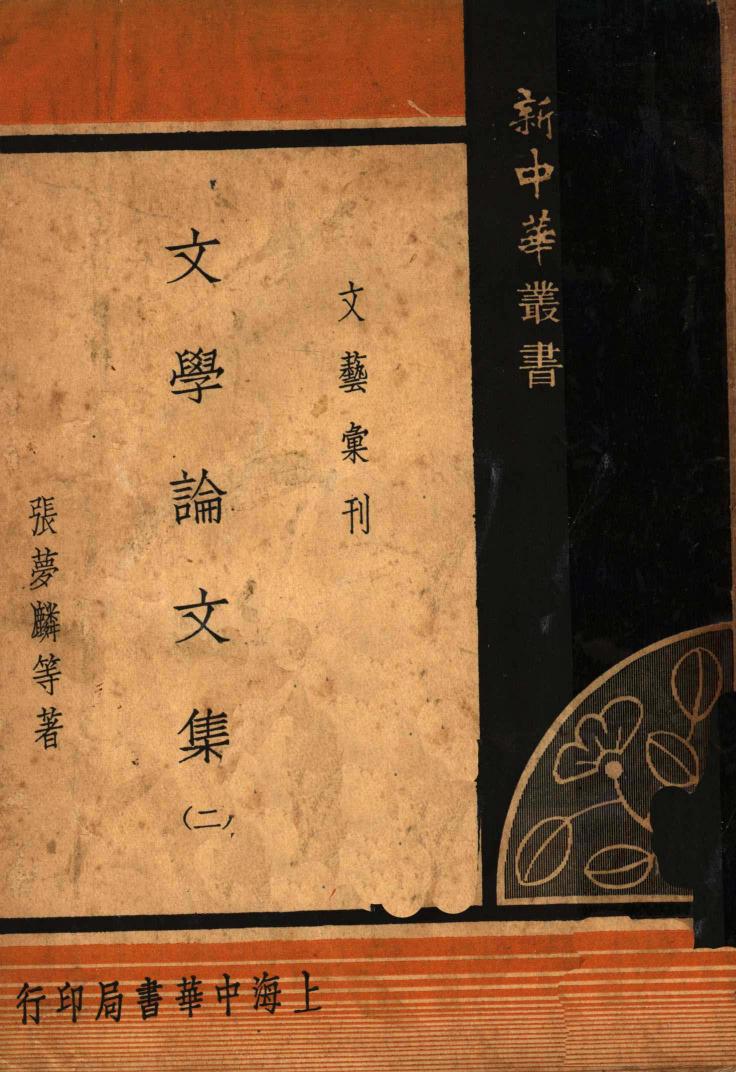 新中華叢書
文藝彙刊
文學論文集
(二)
張夢麟等著
上海中華書局印行